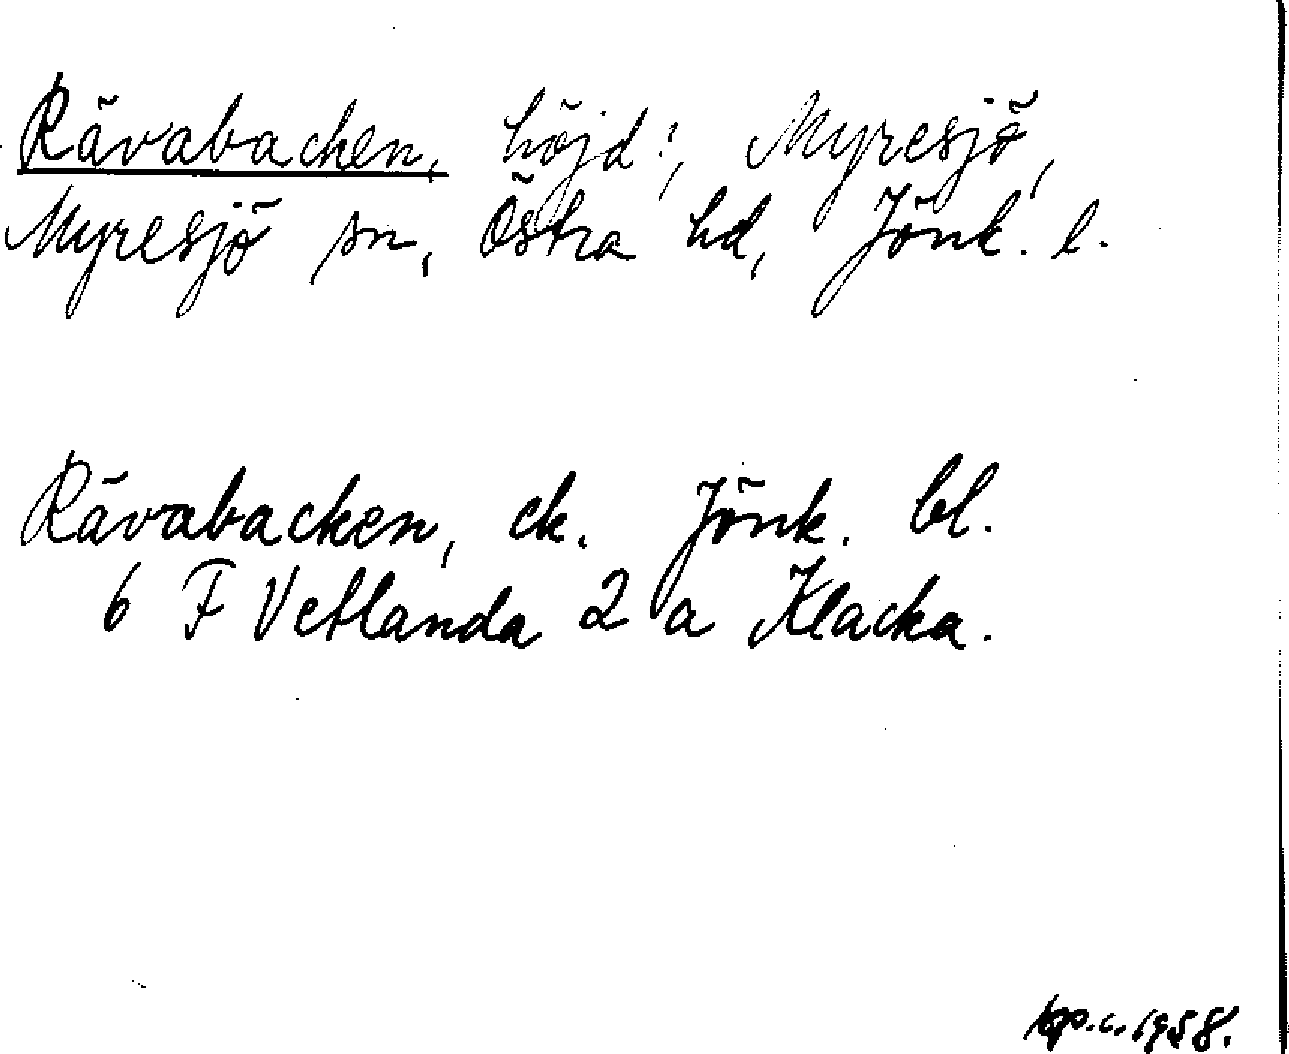 Rävabacken, höjd?, Myresjö,
Myresjö sn, Östra hd, Jönk. l.
Rävabacken, ek. Jönk. bl.
6 F Vetlanda 2 a Klacka.
1958.